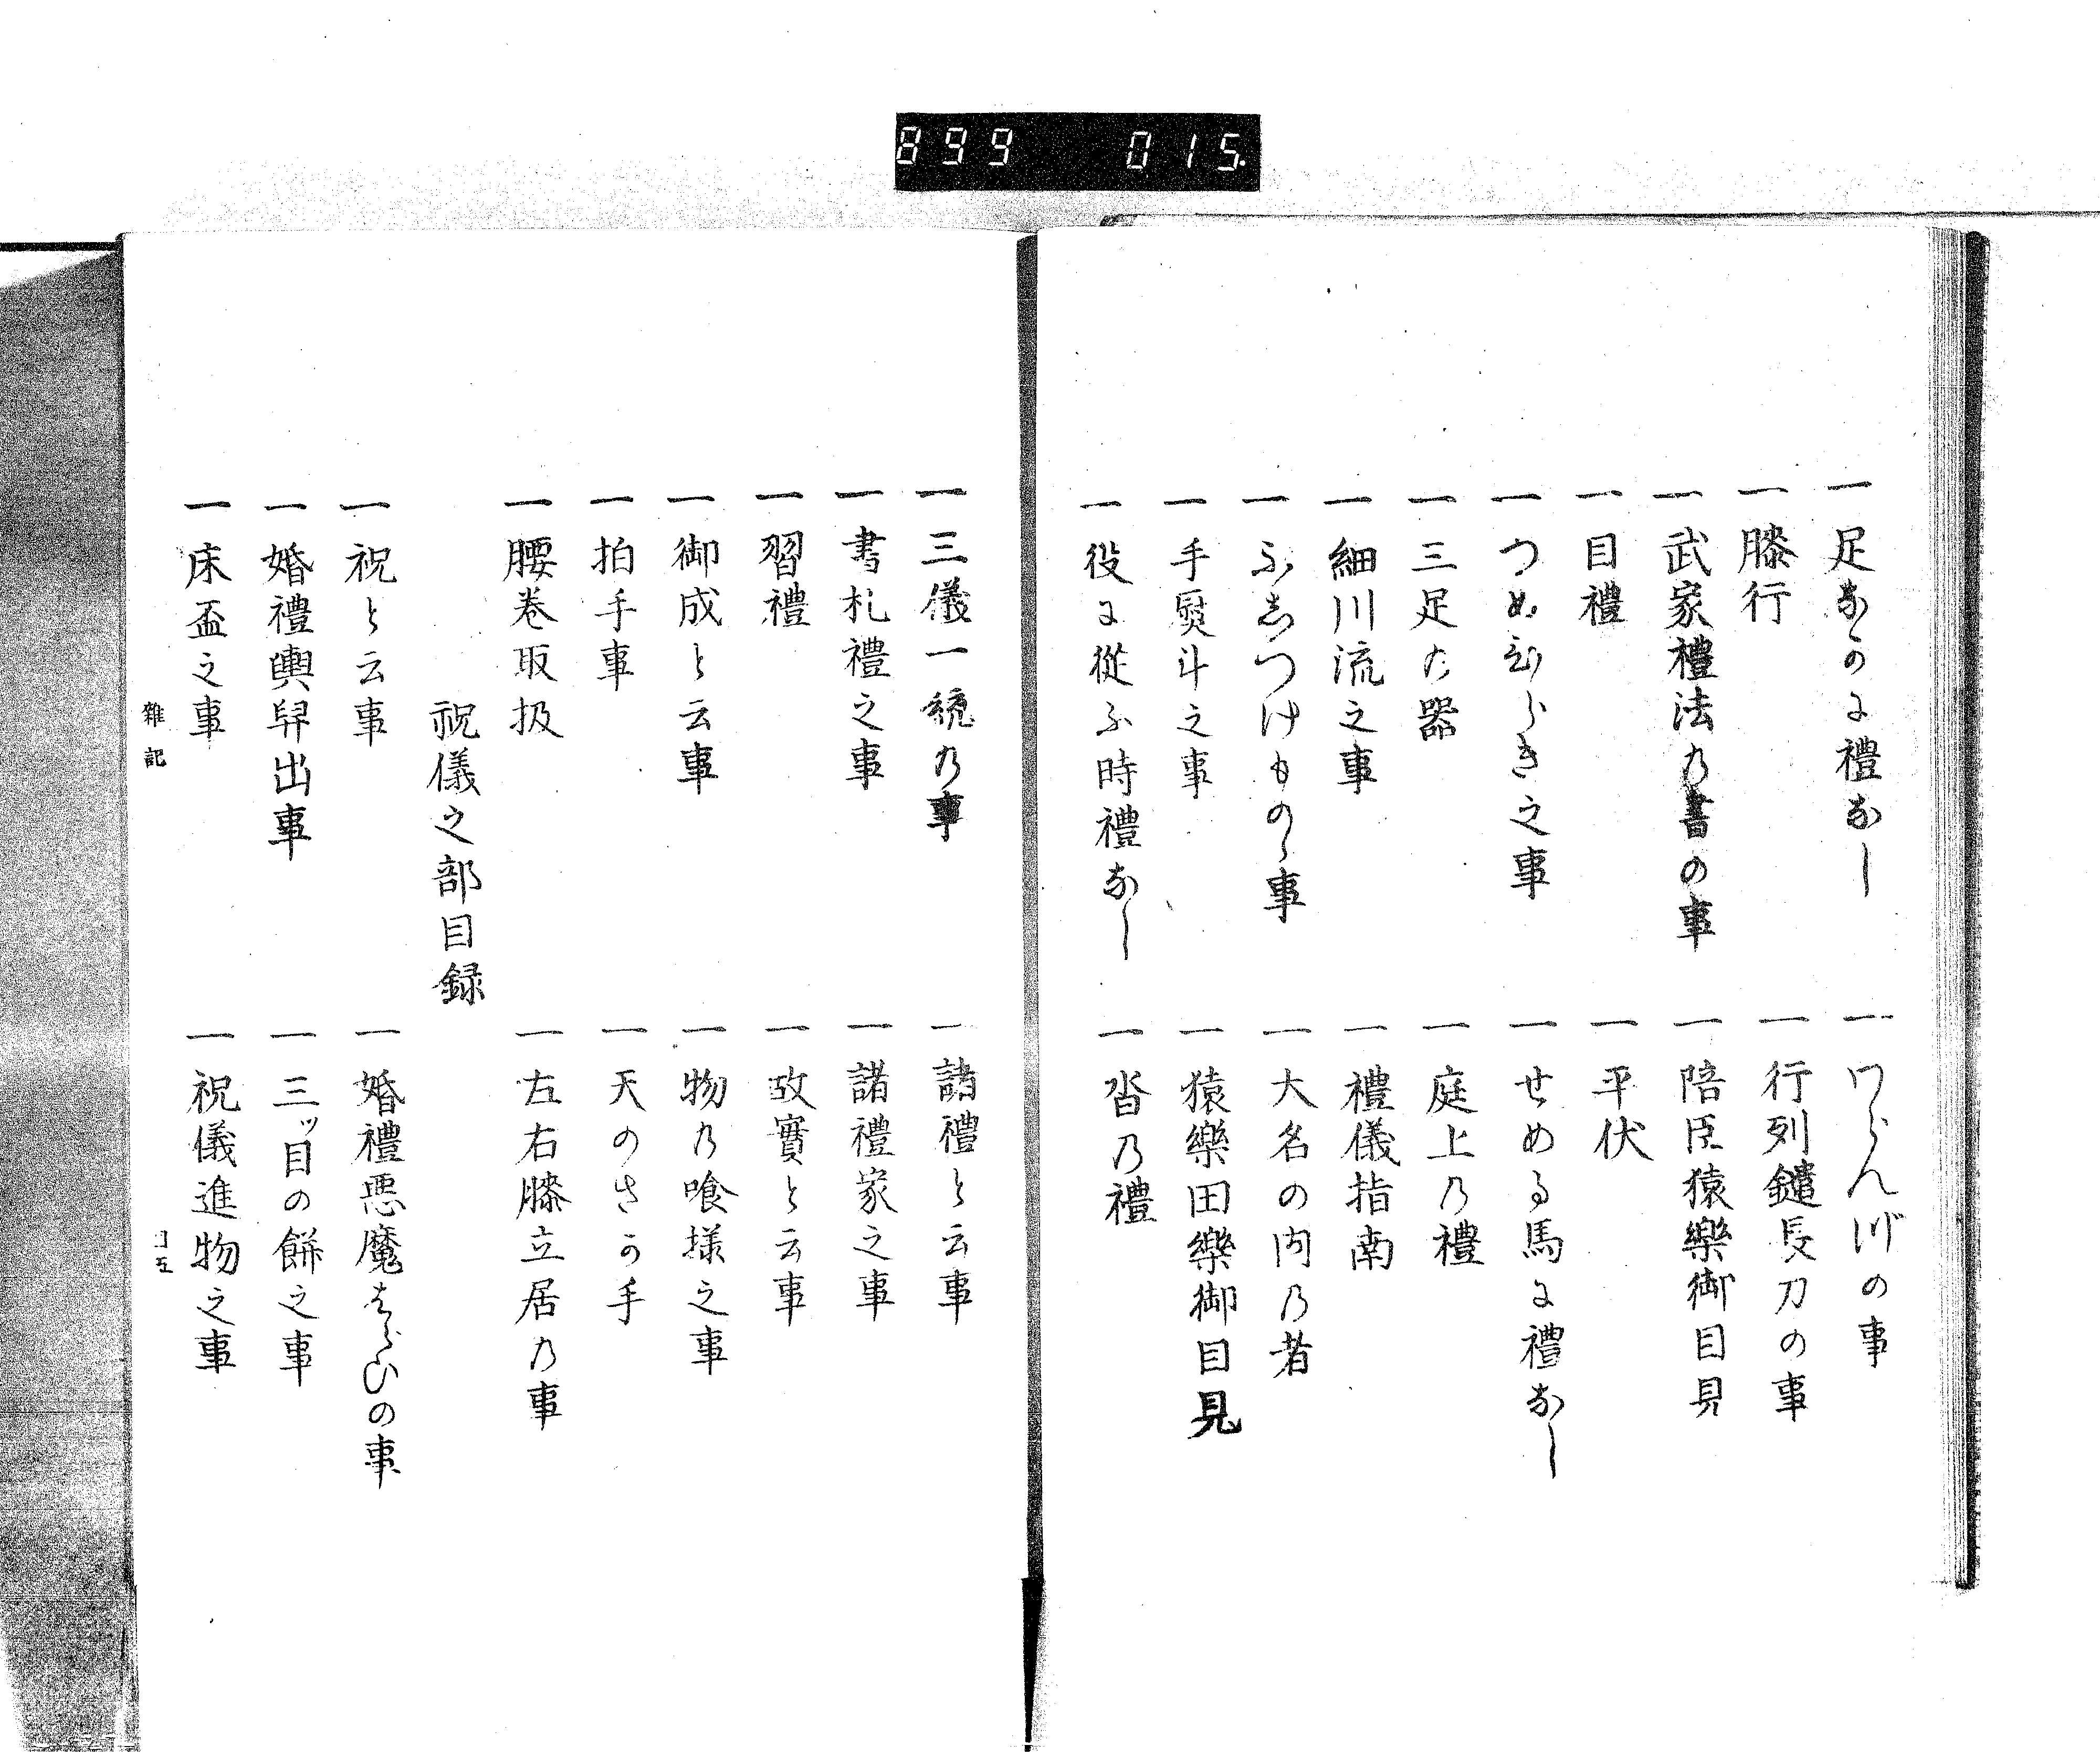 899 015.
一足なかに禮なし
一わらんづの事
一膝行
一行列鑓長刀の事
一武家禮法乃書の事
一陪臣猿樂御目見
一目禮
一平伏
一つめひらき之事
一せめる馬に禮なし
一三足た器
一庭上乃禮
一細川流之事
一禮儀指南
一ふしつけもの〻事
一大名の内乃者
一手熨斗之事
一猿樂田樂御目見
一役に從ふ時禮なし
一沓乃禮
一三儀一統乃事
一諸禮と云事
一書札禮之事
一諸禮家之事
一習禮
一故實と云事
一御成と云事
一物乃喰様之事
一拍手事
一天のさか手
一腰巻取扱
一左右膝立居乃事
祝儀之部目録
一祝と云事
一婚禮悪魔はらひの事
一婚禮輿舁出事
一三ッ目の餅之事
一床盃之事
一祝儀進物之事
雜記
五